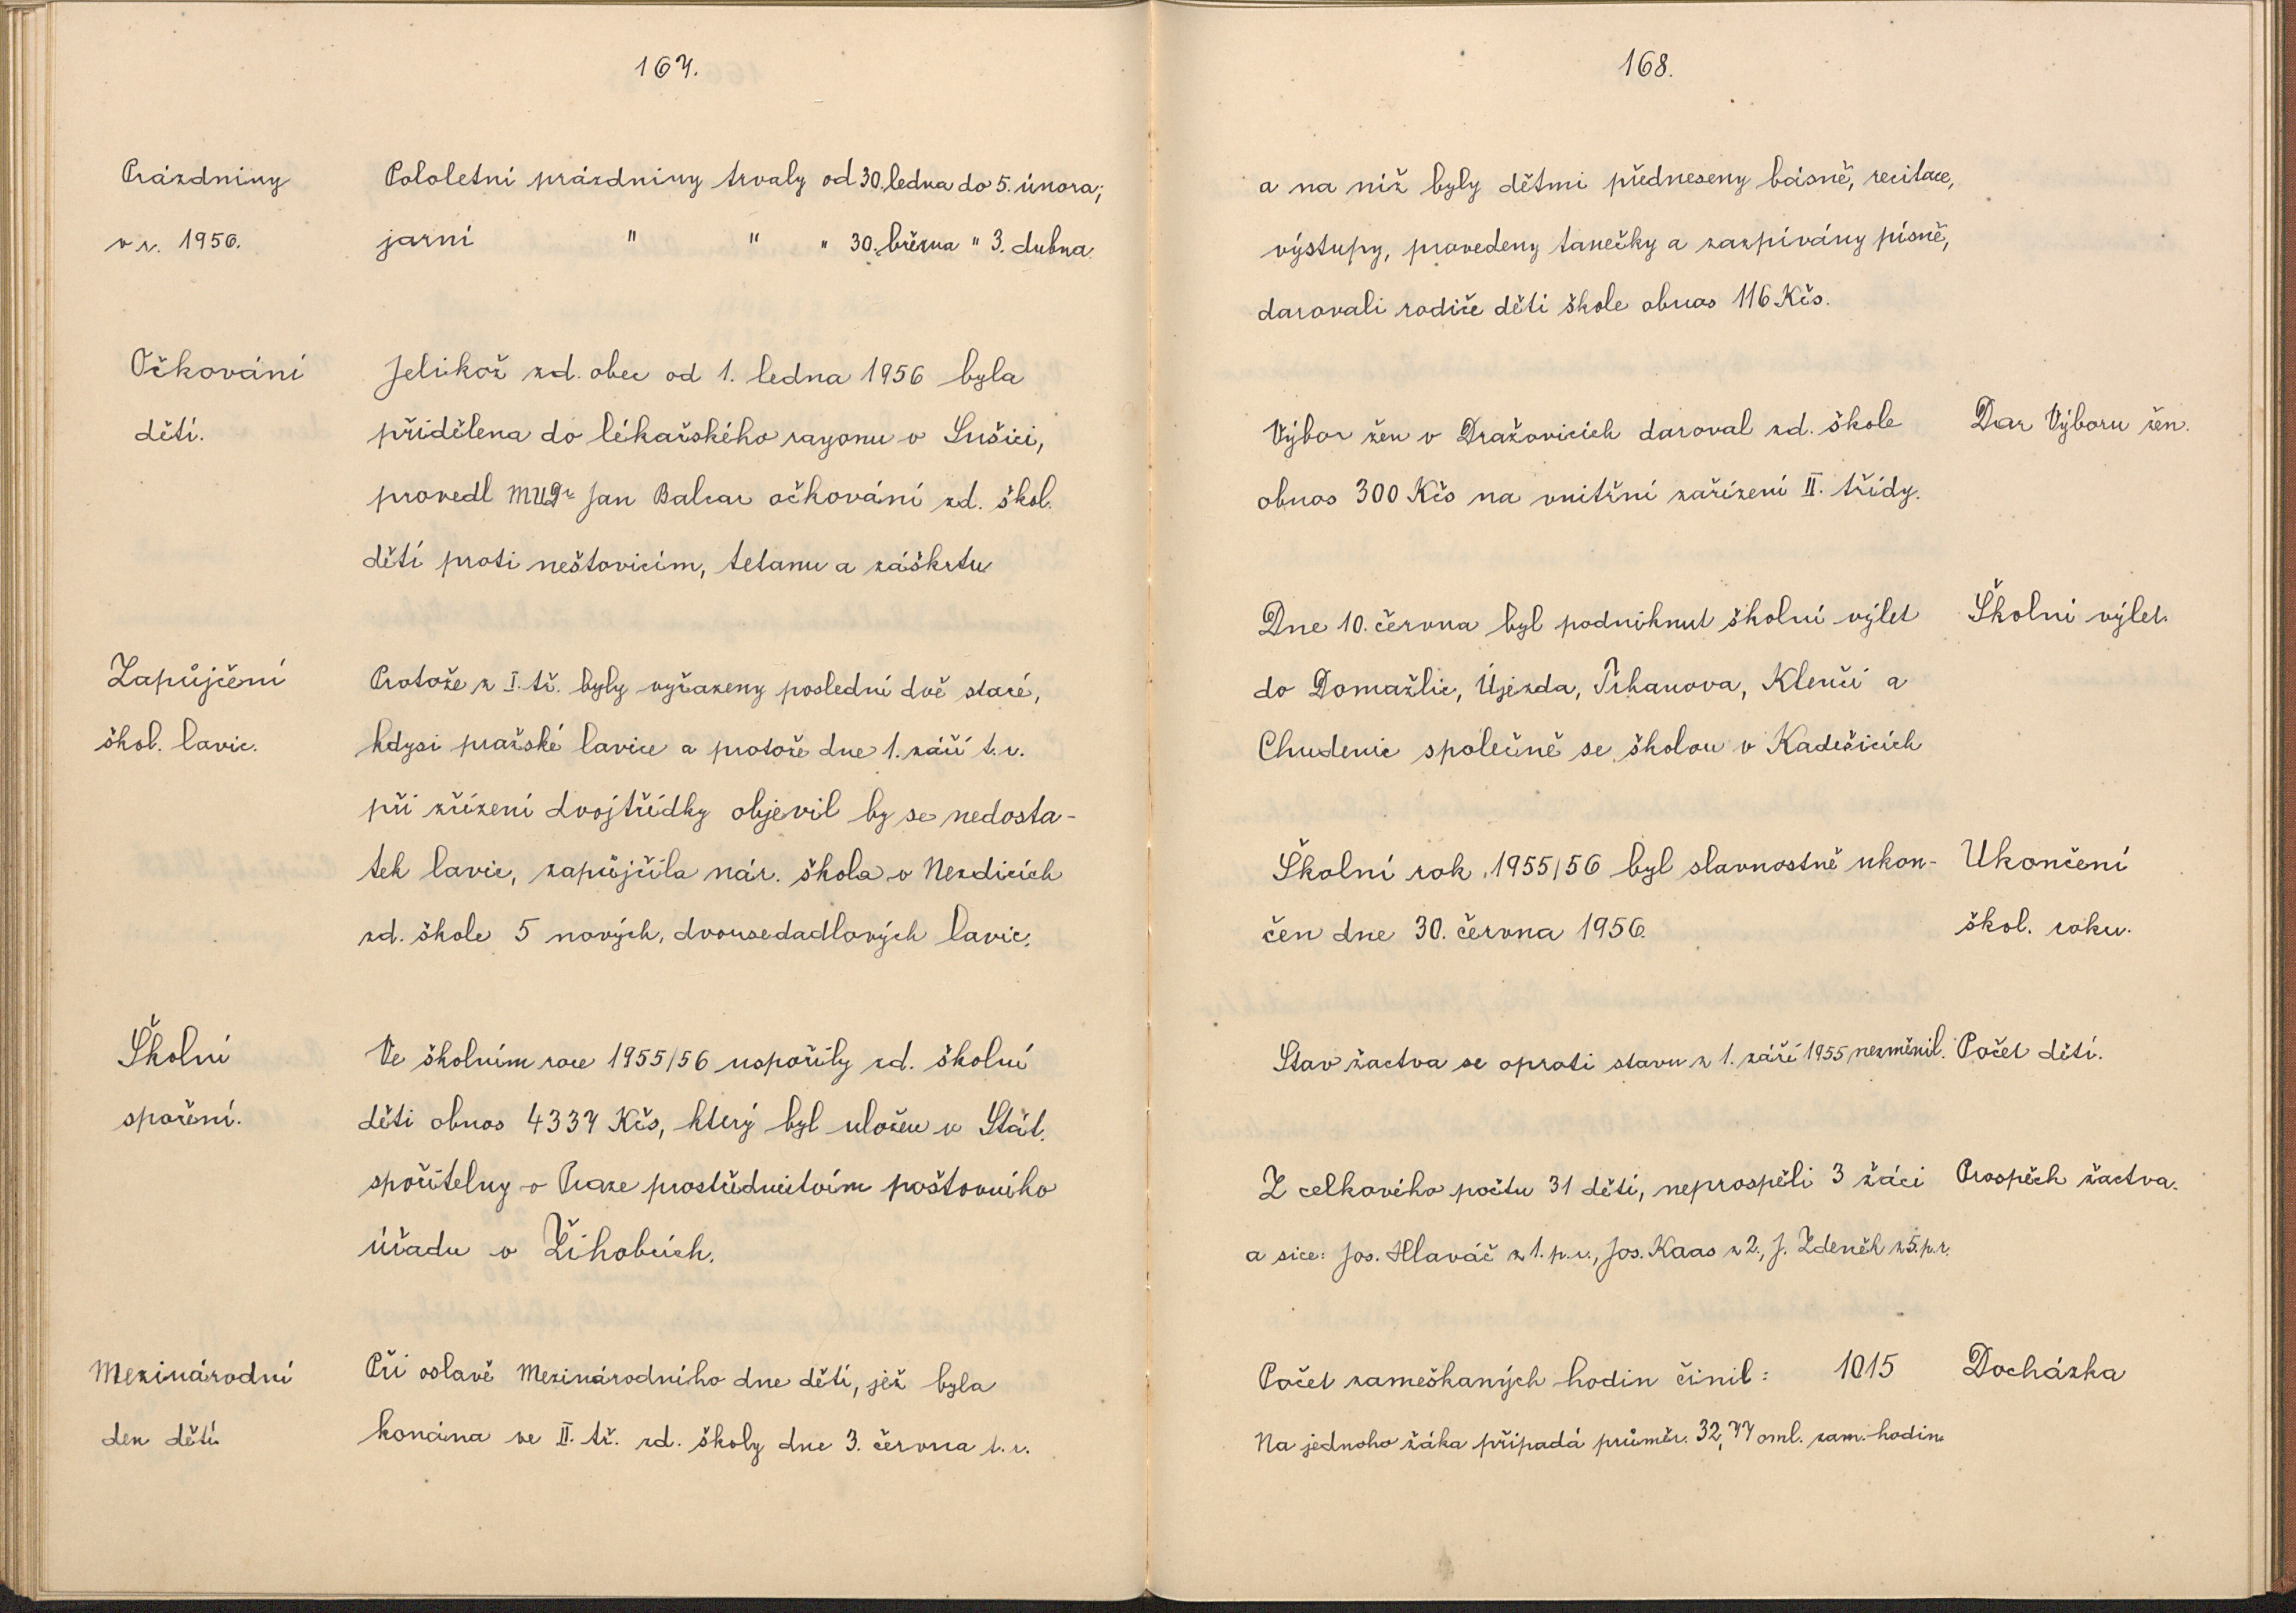 167.
Prázdniny
v r. 1956.
Pololetní prázdniny trvaly od 30. ledna do 5. února;
jarní " " " 30. března " 3. dubna.
Očkování
dětí.
Jelikož zd. obec od 1. ledna 1956 byla
přidělena do lékařského rayonu v Sušici,
provedl MUDr Jan Balcar očkování zd. škol.
dětí proti neštovicím, tetanu a záškrtu
Zapůjčení
škol. lavic.
Protože z I. tř. byly vyřazeny poslední dvě staré,
kdysi pražské lavice a protože dne 1. září t. r.
při zřízení dvojtřídky objevil by se nedosta-
tek lavic, zapůjčila nár. škola v Nezdicích
zd. škole 5 nových, dvousedadlových lavic.
Školní
spoření.
Ve školním roce 1955/56 uspořily zd. školní
děti obnos 4337 Kčs, který byl uložen u Stát.
spořitelny v Praze prostřednictvím poštovního
úřadu v Žihobcích.
Mezinárodní
den dětí.
Při oslavě Mezinárodního dne dětí, jež byla
konána ve II. tř. zd. školy dne 3. června t. r.
168.
a na níž byly dětmi předneseny básně, recitace,
výstupy, provedeny tanečky a zazpívány písně,
darovali rodiče dětí škole obnos 116 Kčs.
Výbor žen v Dražovicích daroval zd. škole
obnos 300 Kčs na vnitřní zařízení II. třídy.
Dar Výboru žen.
Dne 10. června byl podniknut školní výlet
do Domažlic, Újezda, Trhanova, Klenčí a
Chudenic společně se školou v Kadešicích
Školní výlet.
Školní rok 1955/56 byl slavnostně ukon-
čen dne 30. června 1956.
Ukončení
škol. roku.
Stav žactva se oproti stavu z 1. září 1955 nezměnil.
Počet dětí.
Z celkového počtu 31 dětí, neprospěli 3 žáci
a sice: Jos. Hlaváč z 1. p. r., Jos. Kaas z 2., J. Zdeněk z 5. p. r.
Prospěch žactva.
Počet zameškaných hodin činil: 1015
Na jednoho žáka připadá průměr. 32,77 oml. zam. hodin.
Docházka